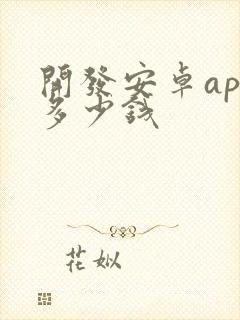 開發安卓ap
多少錢
花姒